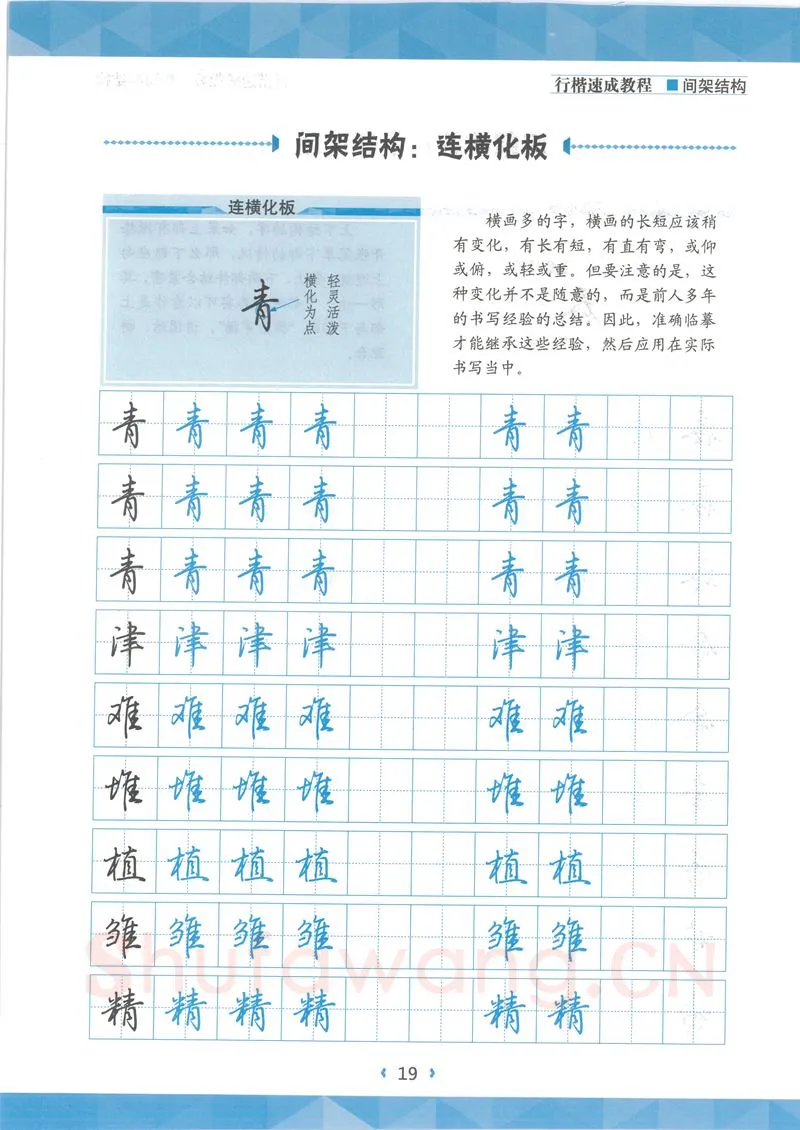 行楷速成教程 ■ 间架结构
间架结构：连横化板
连横化板
青
横化为点
轻灵活泼
横画多的字，横画的长短应该稍
有变化，有长有短，有直有弯，或仰
或俯，或轻或重。但要注意的是，这
种变化并不是随意的，而是前人多年
的书写经验的总结。因此，准确临摹
才能继承这些经验，然后应用在实际
书写当中。
青 青 青 青 青 青
青 青 青 青 青 青
青 青 青 青 青 青
津 津 津 津 津 津
难 难 难 难 难 难
堆 堆 堆 堆 堆 堆
植 植 植 植 植 植
雏 雏 雏 雏 雏 雏
精 精 精 精 精 精
Shufawang.CN
19